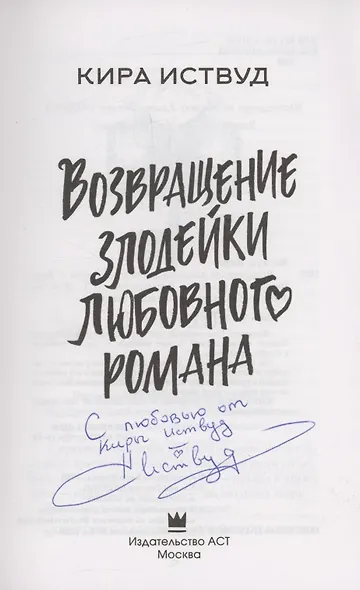 КИРА ИСТВУД
ВОЗВРАЩЕНИЕ
ЗЛОДЕЙКИ
ЛЮБОВНОГО
РОМАНА
С любовью от
Киры Иствуд
Иствуд
Издательство АСТ
Москва